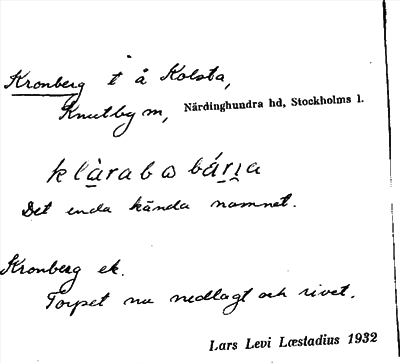 Kronberg t å Kolsta,
Knutby sn, Närdinghundra hd, Stockholms l.
Det enda kända namnet.
Kronberg ek.
Torpet nu nedlagt och rivet.
Lars Levi Læstadius 1932